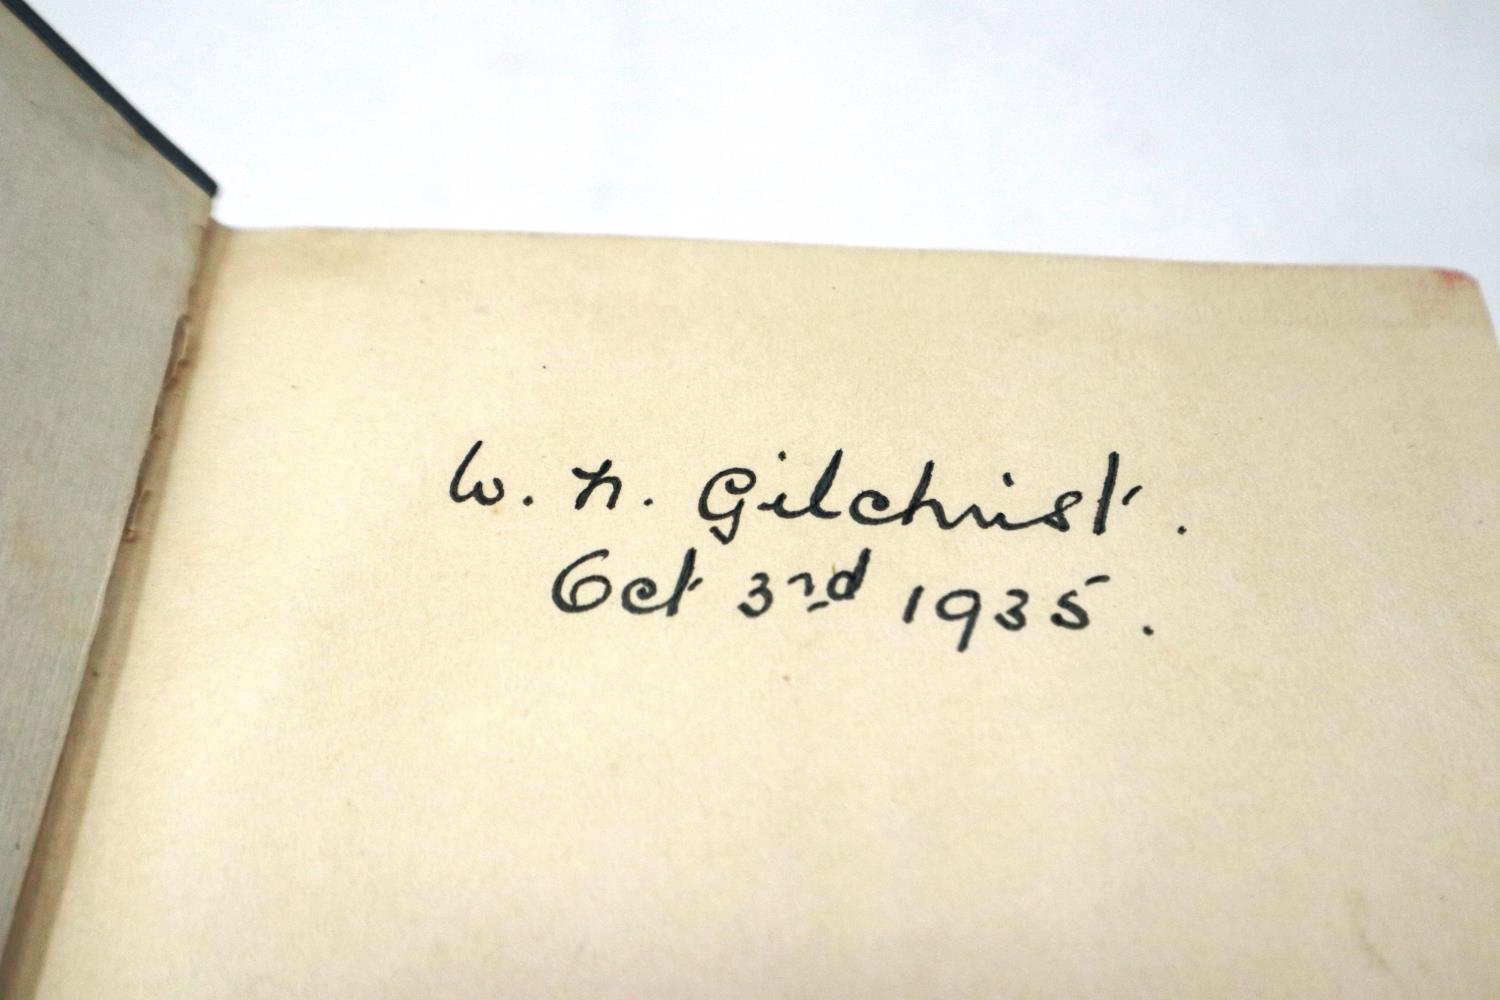 W. N. Gilchrist.
Oct 3rd 1935.